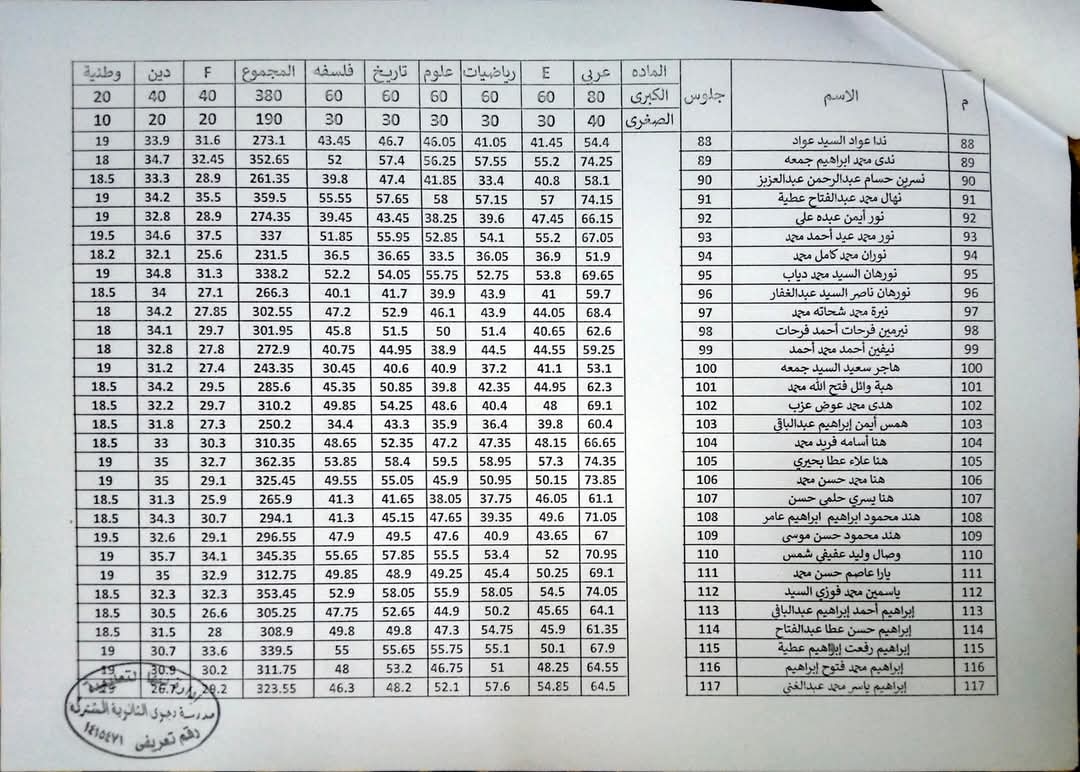 م الاسم جلوس الماده عربي E رياضيات علوم تاريخ فلسفه المجموع F دين وطنية
الكبرى 80 60 60 60 60 60 380 40 40 20
الصغرى 40 30 30 30 30 30 190 20 20 10
88 ندا عواد السيد عواد 88 54.4 41.45 41.05 46.05 46.7 43.45 273.1 31.6 33.9 19
89 ندى محمد ابراهيم جمعه 89 74.25 55.2 57.55 56.25 57.4 52 352.65 32.45 34.7 18
90 نسرين حسام عبدالرحمن عبدالعزيز 90 58.1 40.8 33.4 41.85 47.4 39.8 261.35 28.9 33.3 18.5
91 نهال محمد عبدالفتاح عطية 91 74.15 57 57.15 58 57.65 55.55 359.5 35.5 34.2 19
92 نور أيمن عبده على 92 66.15 47.45 39.6 38.25 43.45 39.45 274.35 28.9 32.8 19
93 نور محمد عيد أحمد محمد 93 67.05 55.2 54.1 52.85 55.95 51.85 337 37.5 34.6 19.5
94 نوران محمد كامل محمد 94 51.9 36.9 36.05 33.5 36.65 36.5 231.5 25.6 32.1 18.2
95 نورهان السيد محمد دياب 95 69.65 53.8 52.75 55.75 54.05 52.2 338.2 31.3 34.8 19
96 نورهان ناصر السيد عبدالغفار 96 59.7 41 43.9 39.9 41.7 40.1 266.3 27.1 34 18.5
97 نيرة محمد شحاته محمد 97 68.4 44.05 43.9 46.1 52.9 47.2 302.55 27.85 34.2 18
98 نيرمين فرحات أحمد فرحات 98 62.6 40.65 51.4 50 51.5 45.8 301.95 29.7 34.1 18
99 نيفين أحمد محمد أحمد 99 59.25 44.55 44.5 38.9 44.95 40.75 272.9 27.8 32.8 18
100 هاجر سعيد السيد جمعه 100 53.1 41.1 37.2 40.9 40.6 30.45 243.35 27.4 31.2 19
101 هبة وائل فتح الله محمد 101 62.3 44.95 42.35 39.8 50.85 45.35 285.6 29.5 34.2 18.5
102 هدى محمد عوض عزب 102 69.1 48 40.4 48.6 54.25 49.85 310.2 29.7 32.2 18.5
103 همس أيمن إبراهيم عبدالباقى 103 60.4 39.8 36.4 35.9 43.3 34.4 250.2 27.3 31.8 18.5
104 هنا أسامه فريد محمد 104 66.65 48.15 47.35 47.2 52.35 48.65 310.35 30.3 33 18.5
105 هنا علاء عطا بحيري 105 74.35 57.3 58.95 59.5 58.4 53.85 362.35 32.7 35 19
106 هنا محمد حسن محمد 106 73.85 50.15 50.95 45.9 55.05 49.55 325.45 29.1 35 19
107 هنا يسري حلمى حسن 107 61.1 46.05 37.75 38.05 41.65 41.3 265.9 25.9 31.3 18.5
108 هند محمود ابراهيم ابراهيم عامر 108 71.05 49.6 39.35 47.65 45.15 41.3 294.1 30.7 34.3 18.5
109 هند محمود حسن موسى 109 67 43.65 40.9 47.6 49.5 47.9 296.55 29.1 32.6 19.5
110 وصال وليد عفيفي شمس 110 70.95 52 53.4 55.5 57.85 55.65 345.35 34.1 35.7 19
111 يارا عاصم حسن محمد 111 69.1 50.25 45.4 49.25 48.9 49.85 312.75 32.9 35 19
112 ياسمين محمد فوزي السيد 112 74.05 54.5 58.05 55.9 58.05 52.9 353.45 32.3 32.3 18.5
113 إبراهيم أحمد إبراهيم عبدالباقى 113 64.1 45.65 50.2 44.9 52.65 47.75 305.25 26.6 30.5 18.5
114 إبراهيم حسن عطا عبدالفتاح 114 61.35 45.9 54.75 47.3 49.8 49.8 308.9 28 31.5 18.5
115 إبراهيم رفعت إبراهيم عطية 115 67.9 50.1 55.1 55.75 55.65 55 339.5 33.6 30.7 19
116 إبراهيم محمد فتوح إبراهيم 116 64.55 48.25 51 46.75 53.2 48 311.75 30.2 30.9 19
117 إبراهيم ياسر محمد عبدالغنى 117 64.5 54.85 57.6 52.1 48.2 46.3 323.55 29.2 26.7
التعليمية
مدرسة دجوى الثانوية المشتركة
رقم تعريفى ١٤١٥٤٧١